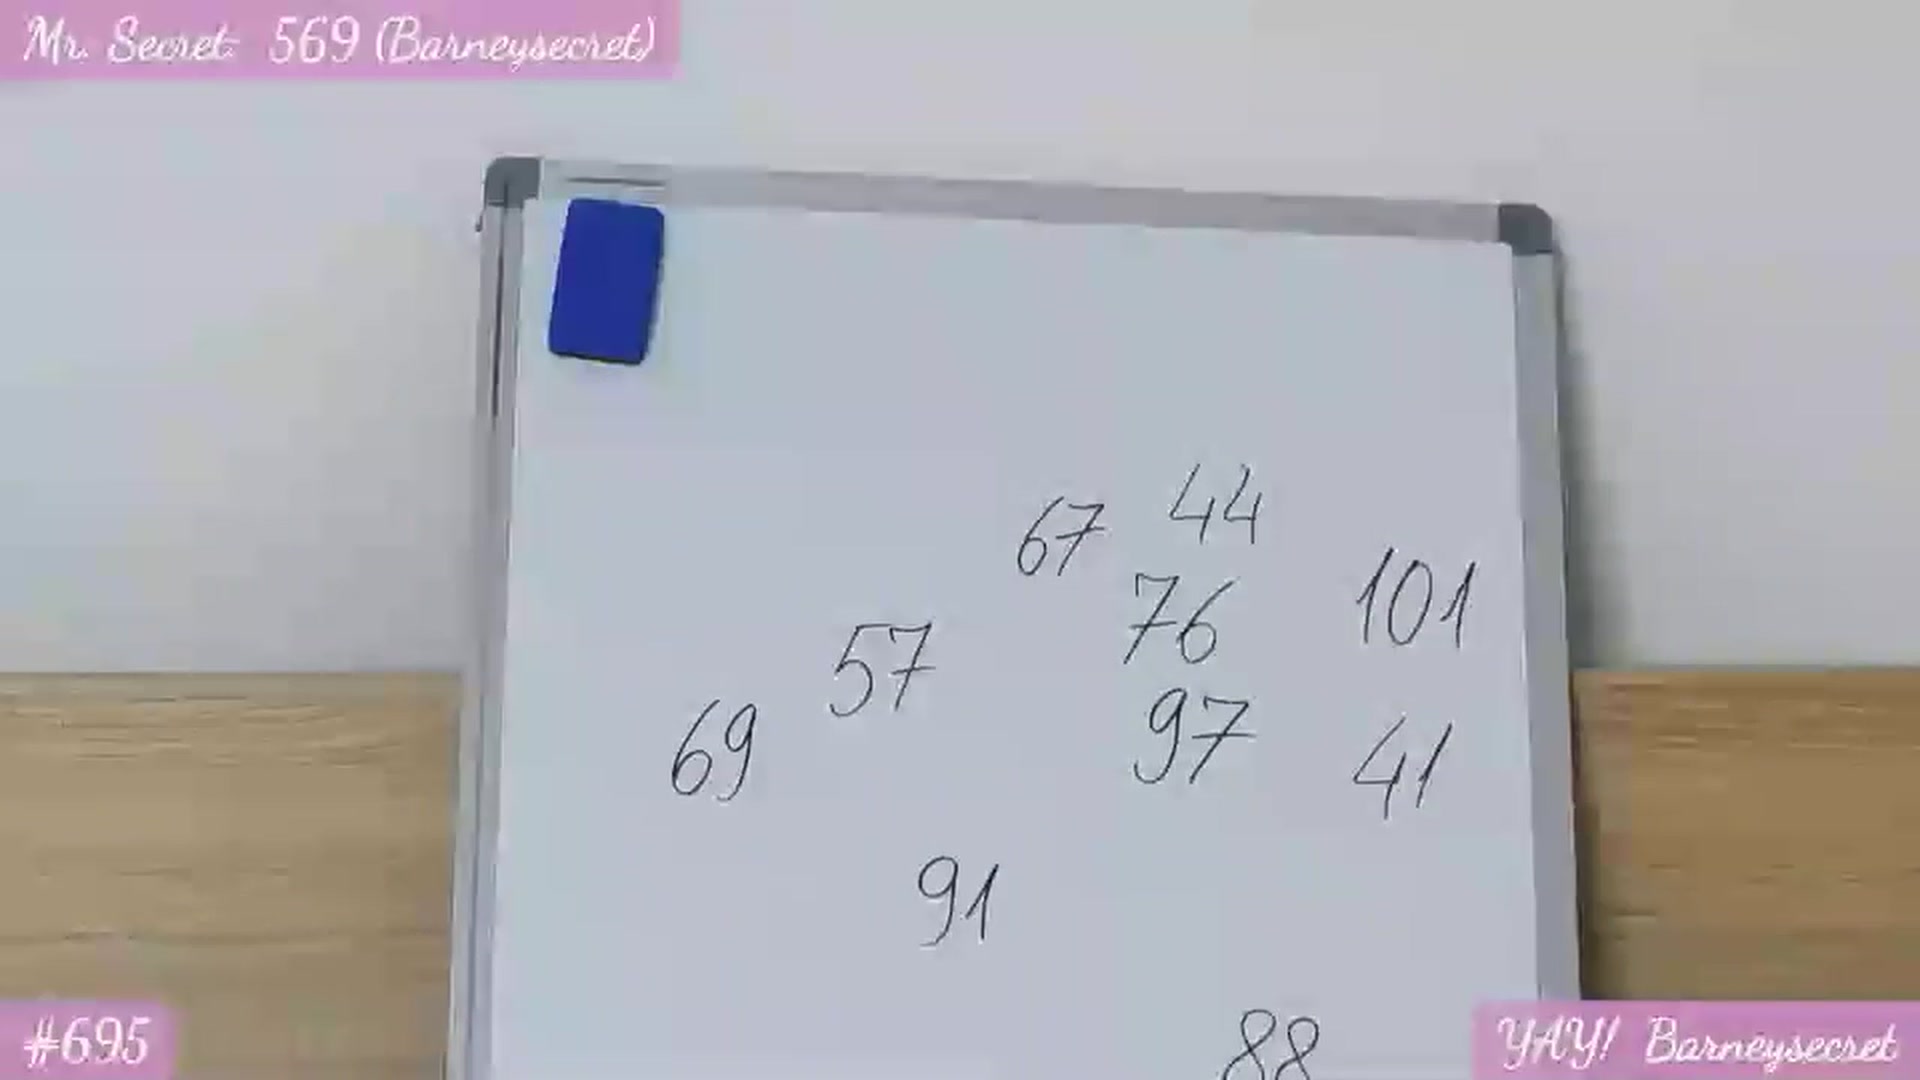 Mr. Secret: 569 (Barneysecret)
44
67
101
76
57
97
69
41
91
88
#695
YAY! Barneysecret